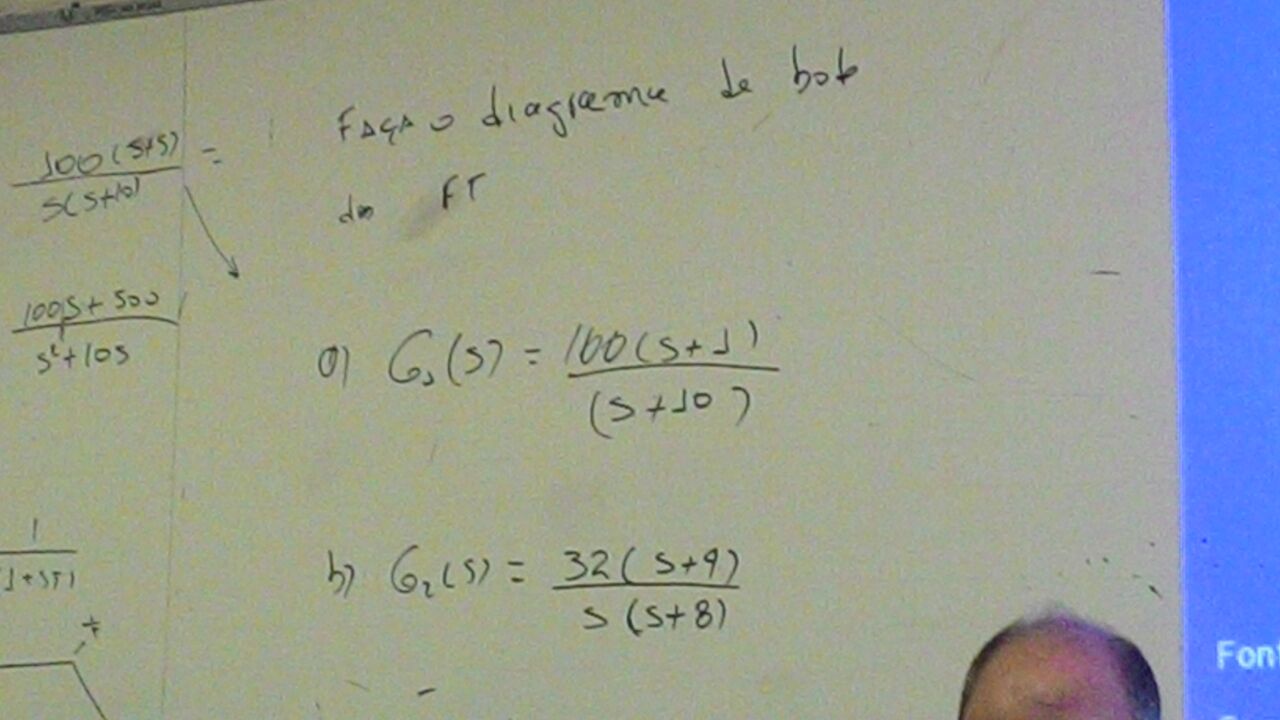 100(s+5) =
s(s+10)
100s + 500
s²+10s
1
Faça o diagrama de bode
da FT
a) G₁(s) = 100(s+1)
(s+10)
b) G₂(s) = 32(s+4)
s(s+8)
+
Font